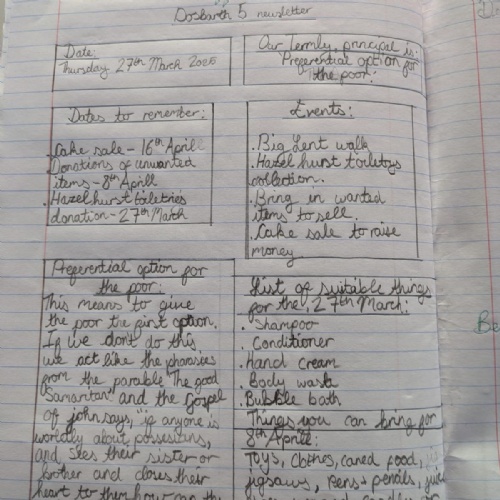 Dosbarth 5 newsletter
Date:
Thursday 27th March 2025
Our Termly, principal is:
Preferential option for
the poor:
Dates to remember:
. Cake sale - 16th Aprill
Donations of unwanted
items - 8th Aprill
. Hazelhurst toiletries
donation - 27th March
Events:
. Big Lent walk
. Hazel hurst toiletys
collection.
. Bring in wanted
items to sell.
. Cake sale to raise
money
Preferential option for
the poor:
This means to give
the poor the first option.
If we don't do this
we act like the pharasies
from the parable 'The good
Samaritan' and the Gospel
of john says, "if anyone is
worldly about possessians,
and sees their sister or
brother and closes their
heart to them how can the
List of suitable things
for the, 27th March:
. Shampoo
. Conditioner
. Hand cream
. Body wash
. Bubble bath
Things you can bring for
8th Aprill:
Toys, Clothes, caned food,
jigsaws, pens + pencils,